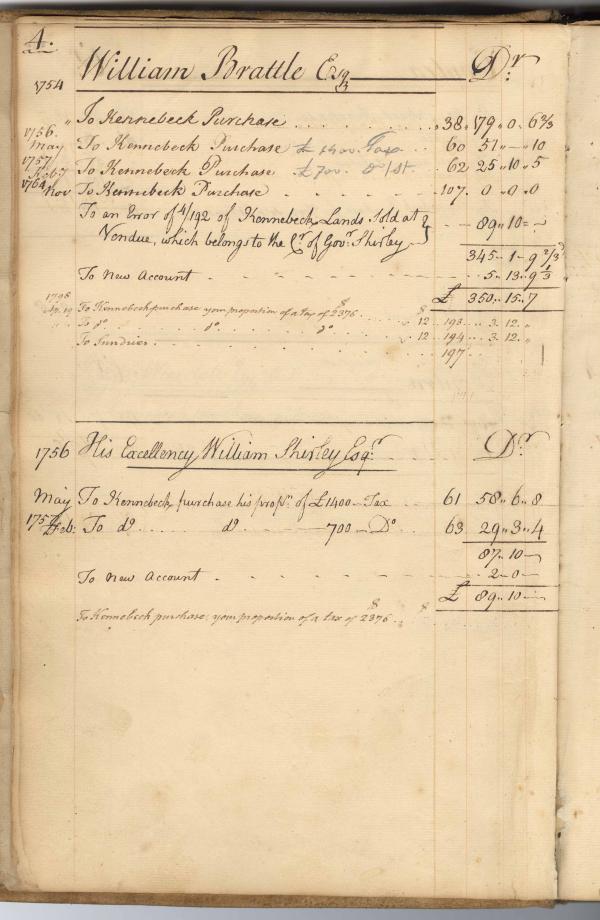 4.
William Brattle Esqr Dr
1754
" To Kennebeck Purchase 38 " 179 " 0 " 6 2/3
1756. May To Kennebeck Purchase £1400 Taxo 60 51 " — " 10
1757 Feb: To Kennebeck Purchase £700. Do 1st. 62 25 " 10 " 5
1764 Nov To Kennebeck Purchase 107. 0 " 0 " 0
To an Error of 4/192 of Kennebeck Lands Sold at
Vendue, which belongs to the Cr. of Govr. Shirley 89 " 10 " -
345 " 1 " 9 2/3
To New Account 5 " 13 " 9 1/3
£ 350 " 15 " 7
To Kennebeck purchase your proportion of a tax of $2376 $ 12 193 3. 12. "
To do. do. do 12 194 3. 12. "
To Sundries 197
1756 His Excellency William Shirley Esqr. Dr
May To Kennebeck purchase his propn. of £1400 — Tax 61 58 " 6 " 8
1757 Feb: To do. do. 700 — Do 63 29 " 3 " 4
87 " 10 —
To New Account 2 " 0 —
£ 89 " 10 —
To Kennebeck purchase, your proportion of a tax of $2376 $